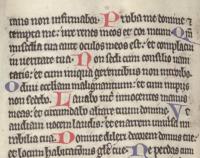 rans non infirmabor. Proba me domine et
tempta me: ure renes meos et cor meum. Qm
misericordia tua ante oculos meos est: et complacui
in veritate tua. Non sedi cum consilio vani
tatis: et cum iniqua gerentibus non introibo.
Odivi ecclesiam malignantium: et cum impiis
non sedebo. Lavabo inter innocentes manus
meas: et circumdabo altare tuum domine. Ut
audiam vocem laudis: et enarrem universa mi
rabilia tua. Domine dilexi decorem domus tue:
et locum habitationis glorie tue. Ne perdas cum